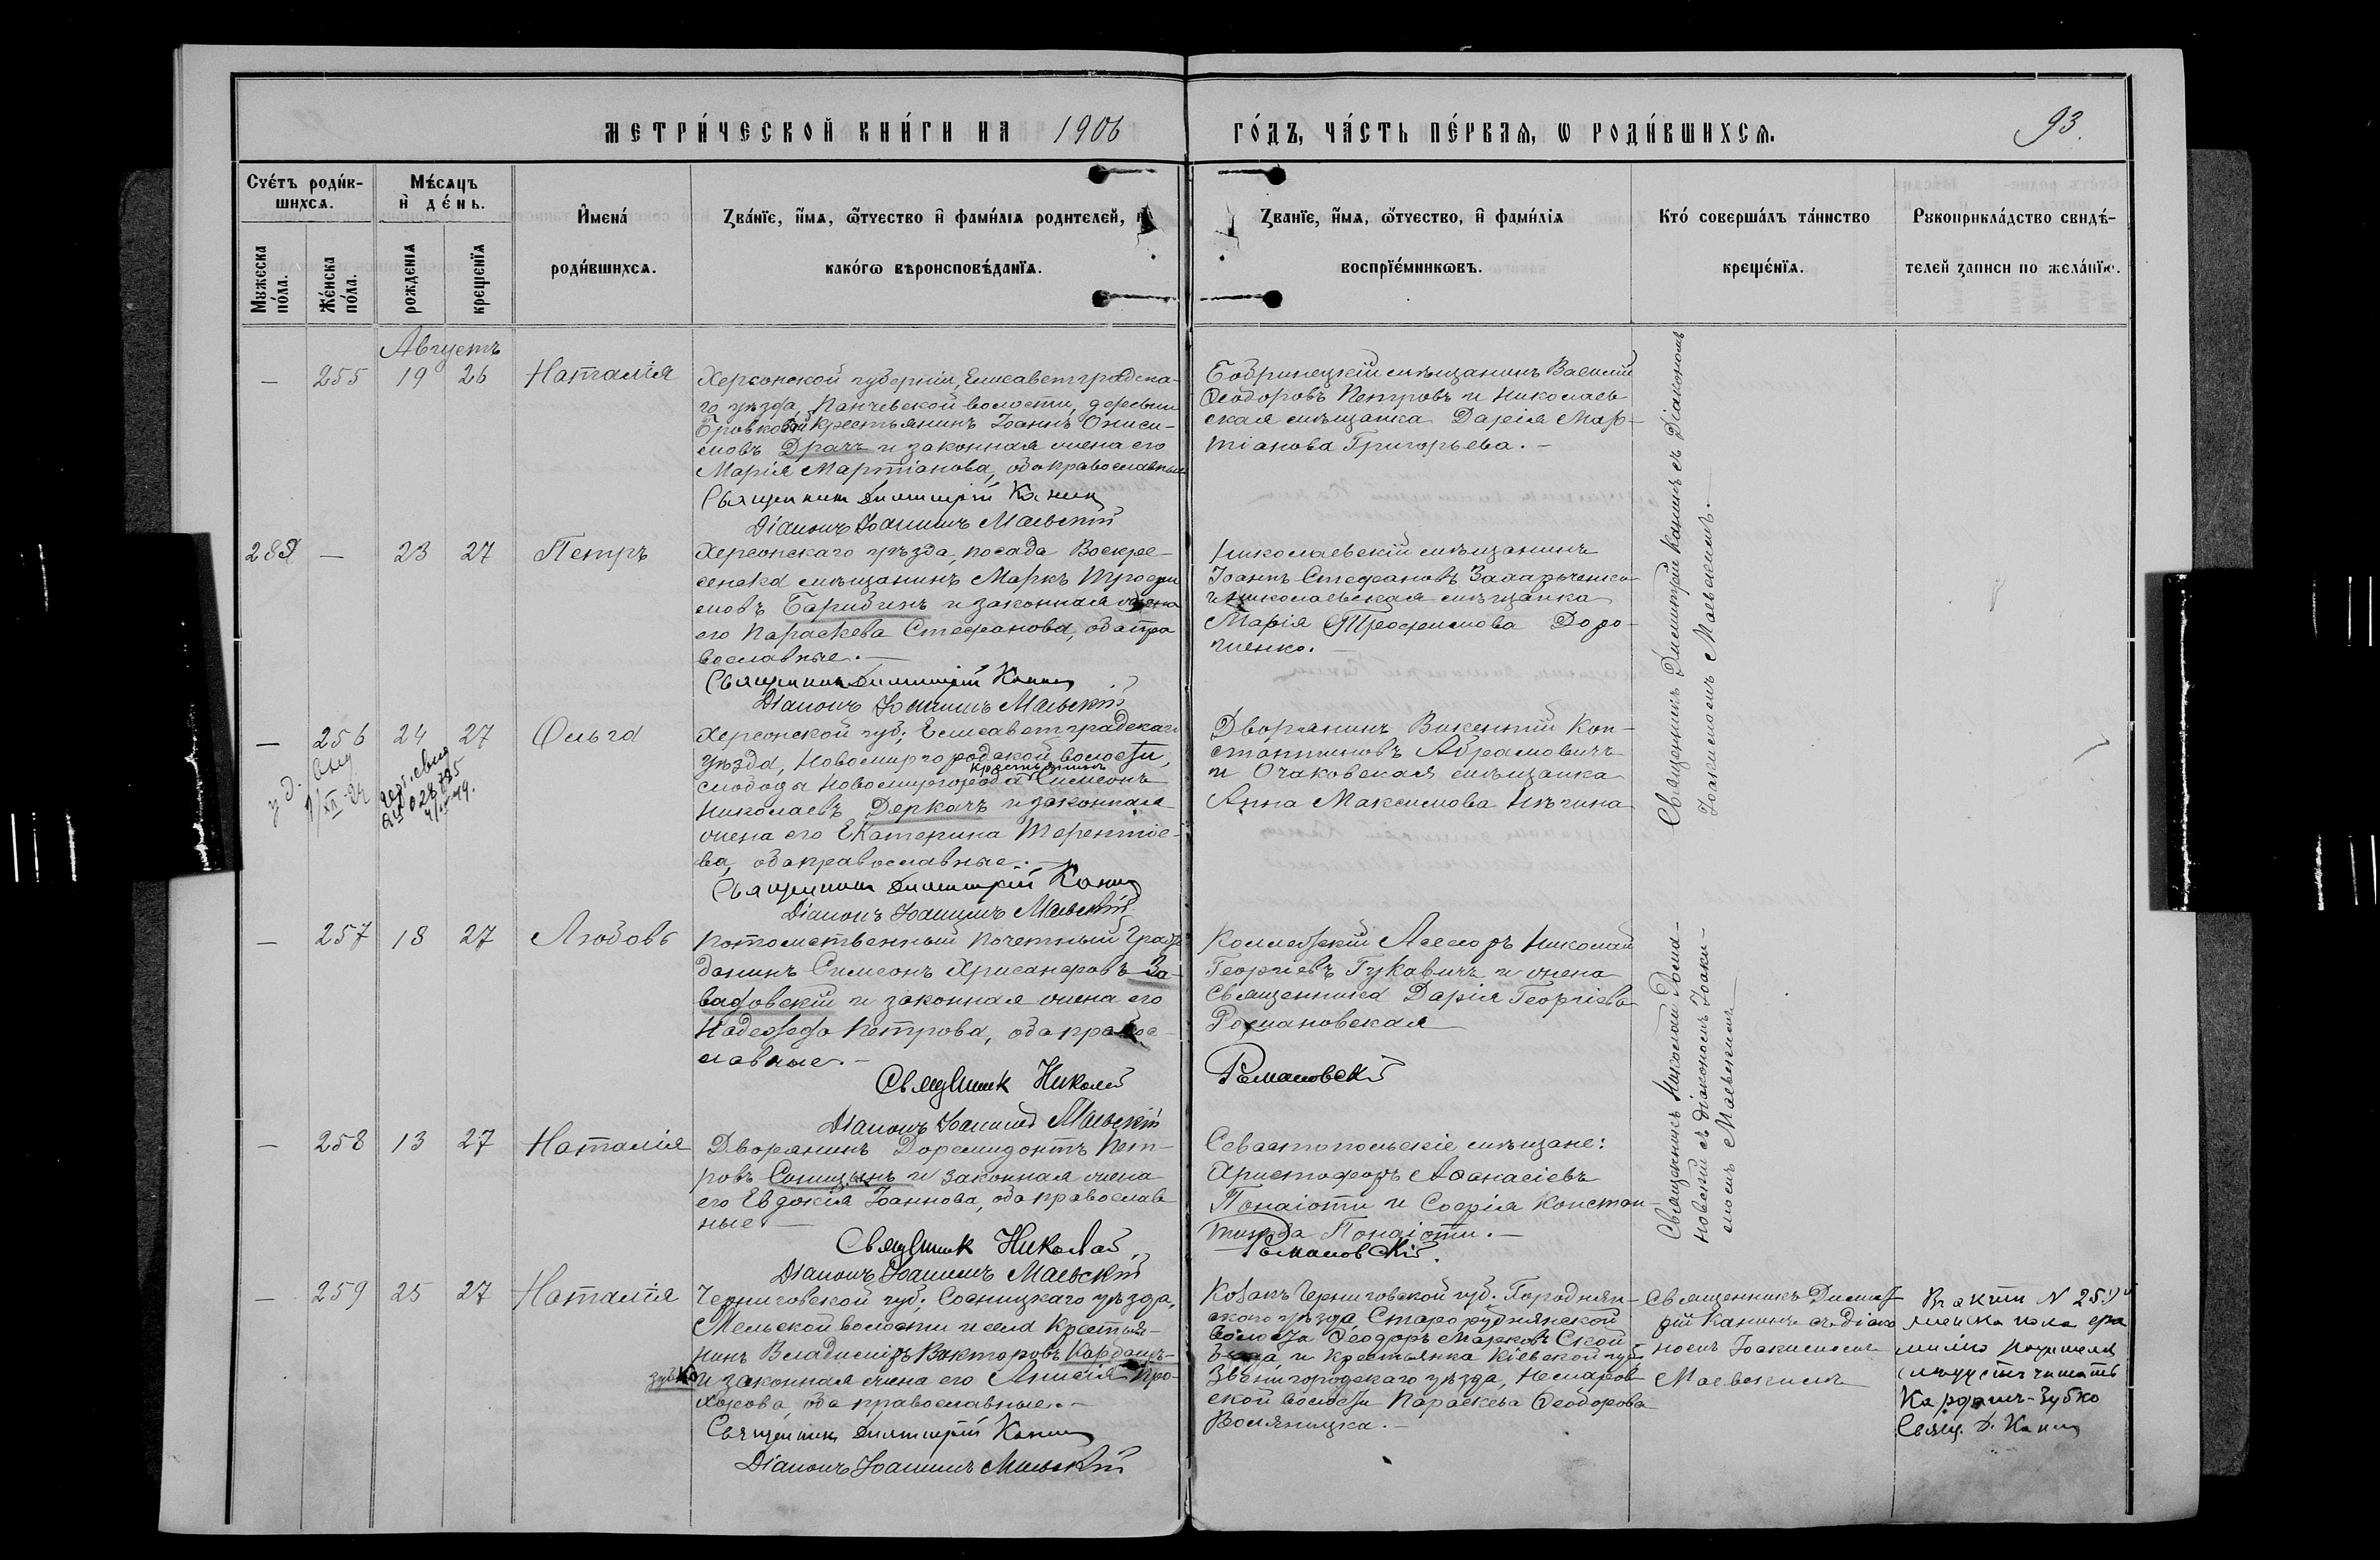 МЕТРИ́ЧЕСКОЙ КНИ́ГИ НА 1906
ГО́ДЪ, ЧА́СТЬ ПЕ́РВАѦ, Ѡ РОДИ́ВШИХСѦ.
93.
Сче́тъ роди́в-
шихсѧ.
Мꙋжеска
по́ла.
Же́нска
по́ла.
Мѣ́сѧцъ
и҆ де́нь.
рожденїѧ
крещенїѧ
И҆мена́
роди́вшихсѧ.
Зва́нїе, и҆́мѧ, ѻ҆́тчество и҆ фами́лїѧ родителей, и҆
како́гѡ вѣроисповѣ́данїѧ.
Званїе, и҆́мѧ, ѻ҆́тчество, и҆ фами́лїѧ
воспрїе́мникѡвъ.
Кто́ соверша́лъ та́инство
креще́нїѧ.
Рꙋкоприкла́дство свидѣ́-
телей записи по жела́нїю.
Августъ
— 255 19 26 Наталія
Херсонской губерніи, Елисаветградска-
го уѣзда, Панчевской волости, деревни
Бровковой крестьянинъ Іоаннъ Ониси-
мовъ Драчъ и законная жена его
Марія Мартіанова, оба православные
Священникъ Димитрій Канин
Діаконъ Іоакимъ Маевскій
Бобринецкій мѣщанинъ Василій
Ѳеодоровъ Петровъ и Николаев
ская мѣщанка Дарія Мар-
тіанова Григорьева. —
Священникъ Димитрій Канинъ съ Діакономъ
Іоакимомъ Маевскимъ. —
289 — 23 27 Петръ
Херсонскаго уѣзда, посада Воскре-
сенска мѣщанинъ Маркъ Трофи
мовъ Барибинъ и законная жена
его Параскева Стефанова, оба пра
вославные. —
Священникъ Димитрій Канин
Діаконъ Іоакимъ Маевскій
Николаевскій мѣщанинъ
Іоаннъ Стефановъ Захарченко
и николаевская мѣщанка
Марія Трофимова Доро-
шенко. —
— 256 24 27 Ольга
XII 24
028885
Херсонской губ; Елисаветградскаго
уѣзда, Новомиргородской волости,
слободы Новомиргорода крестьянинъ Симеонъ
Николаевъ Деркачъ и законная
жена его Екатерина Терентіе-
ва, оба православные. —
Священникъ Димитрій Канин
Діаконъ Іоакимъ Маевскій
Дворянинъ Викентій Кон-
стантиновъ Абрамовичъ
и Очаковская мѣщанка
Анна Максимова Нѣчина
— 257 18 27 Любовь
Потомственный Почетный Граж
данинъ Симеонъ Хрисанфовъ За-
вадовскій и законная жена его
Надежда Петрова, оба право-
славные. —
Священник Николай
Діаконъ Іоакимъ Маевскій
Коллежскій Ассесоръ Николай
Георгіевъ Гукавичъ и жена
священника Дарія Георгіева
Романовская
Романовскій
Священникъ Николай Рома-
новскій съ діакономъ Іоаки-
момъ Маевскимъ —
— 258 13 27 Наталія
Дворянинъ Доримидонтъ Пет-
ровъ Синицынъ и законная жена
его Евдокія Іоаннова, оба православ
ные. —
Священник Николай
Діаконъ Іоакимъ Маевскій
Севастопольскіе мѣщане:
Христофоръ Аѳанасіевъ
Понаіоти и Софія Констан
тинова Понаіоти. —
Романовскій.
— 259 25 27 Наталія
Черниговской губ; Сосницкаго уѣзда,
Мельской волости и села крестья-
нинъ Владиміръ Викторовъ Кардашъ-
зубко и законная жена его Анисія Про-
хорова, оба православные. —
Священникъ Димитрій Канин
Діаконъ Іоакимъ Маевскій
Козакъ Черниговской губ. Городнян-
скаго уѣзда, Старорудлянской
волости Ѳеодоръ Марковъ Ской
беда и крестьянка Кіевской губ;
Звенигородскаго уѣзда,
ской волости Параскева Ѳеодорова
Воляницка. —
Священникъ Димит
рій Канинъ съ діако
номъ Іоакимомъ
Маевскимъ
Въ актѣ N 259й
женска пола фа
милію родителя
слѣдуетъ читать
Кардашъ-Зубко
Свящ. Д. Канин